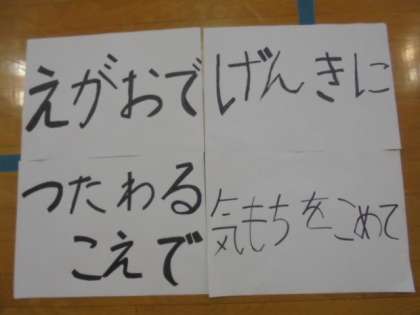 えがおで
げんきに
つたわる
こえで
気もちをこめて